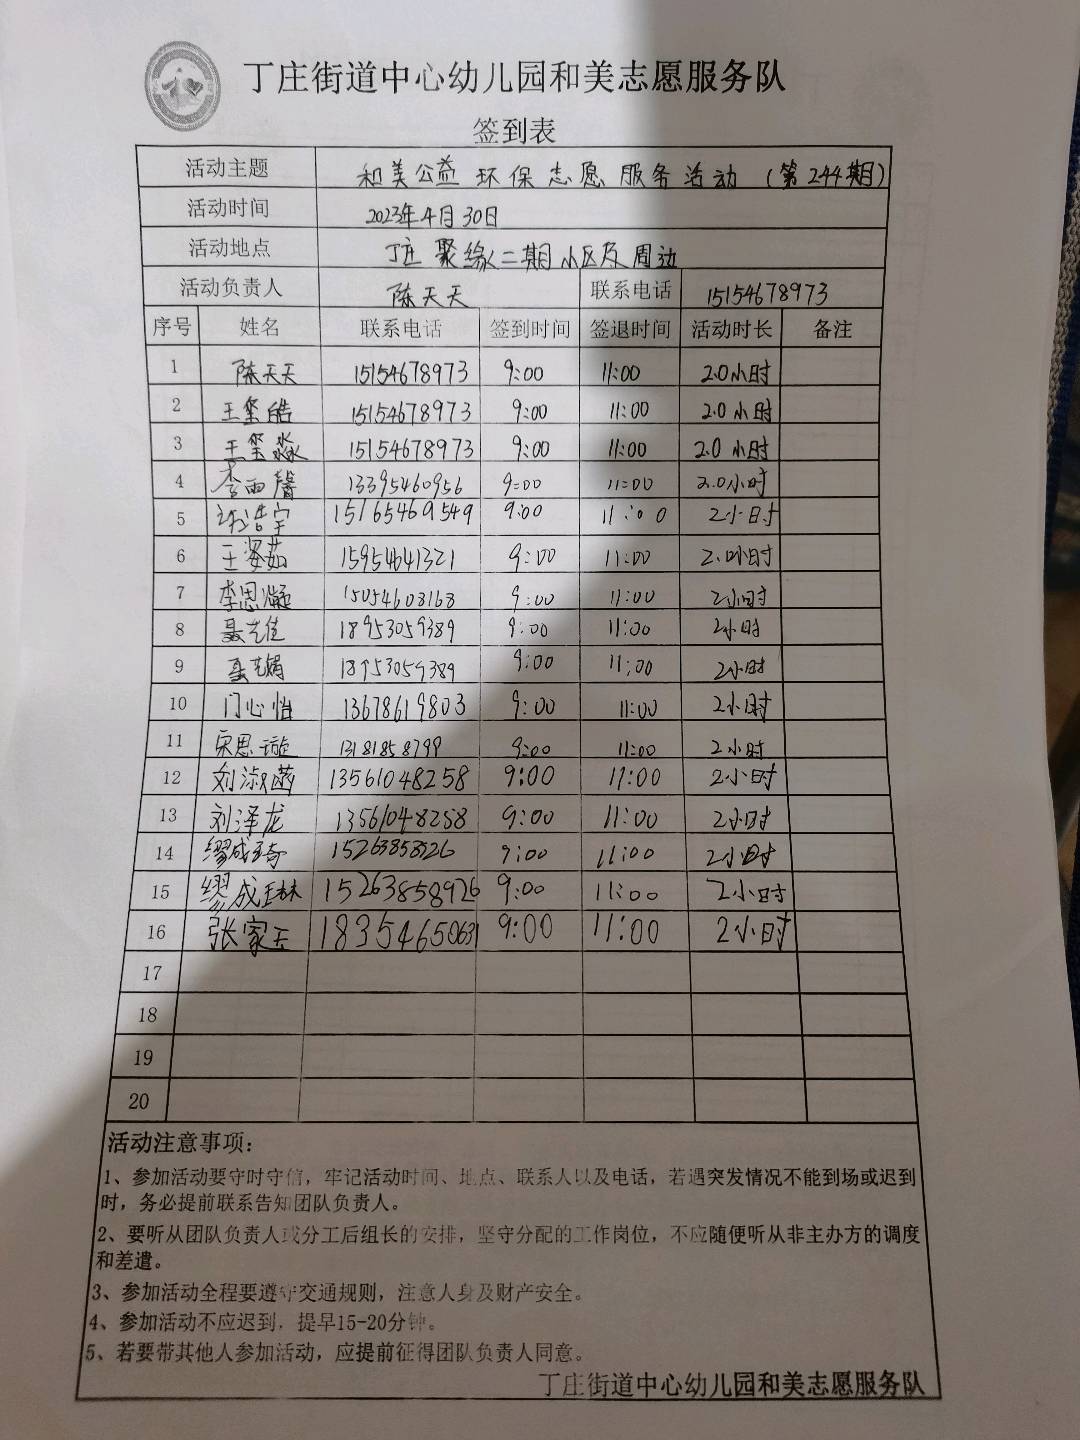 丁庄街道中心幼儿园和美志愿服务队
签到表
活动主题 和美公益 环保志愿服务活动（第244期）
活动时间 2023年4月30日
活动地点 丁庄聚缘二期小区及周边
活动负责人 陈天天 联系电话 15154678973
序号 姓名 联系电话 签到时间 签退时间 活动时长 备注
1 陈天天 15154678973 9:00 11:00 2.0小时
2 王玺皓 15154678973 9:00 11:00 2.0小时
3 王玺淼 15154678973 9:00 11:00 2.0小时
4 李雨馨 13395460956 9:00 11:00 2.0小时
5 浩宇 15165469549 9:00 11:00 2小时
6 王姿茹 15954641321 9:00 11:00 2.0小时
7 李思凝 15054608168 9:00 11:00 2小时
8 聂艺佳 18953059389 9:00 11:00 2小时
9 18953059389 9:00 11:00 2小时
10 门心怡 13678619803 9:00 11:00 2小时
11 宋思璇 13181858799 9:00 11:00 2小时
12 刘淑菡 13561048258 9:00 11:00 2小时
13 刘泽龙 13561048258 9:00 11:00 2小时
14 缪成琦 9:00 11:00 2小时
15 缪成琳 15263858926 9:00 11:00 2小时
16 张家玉 18354650631 9:00 11:00 2小时
17
18
19
20
活动注意事项：
1、参加活动要守时守信，牢记活动时间、地点、联系人以及电话，若遇突发情况不能到场或迟到
时，务必提前联系告知团队负责人。
2、要听从团队负责人或分工后组长的安排，坚守分配的工作岗位，不应随便听从非主办方的调度
和差遣。
3、参加活动全程要遵守交通规则，注意人身及财产安全。
4、参加活动不应迟到，提早15-20分钟。
5、若要带其他人参加活动，应提前征得团队负责人同意。
丁庄街道中心幼儿园和美志愿服务队